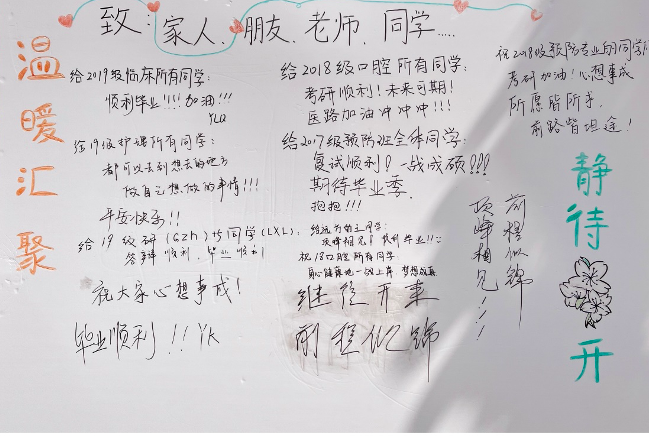 致：家人、朋友、老师、同学.....
温暖汇聚
给2019级临床所有同学：
顺利毕业!!!加油!!!
YLQ
给19级护理所有同学：
都可以去到想去的地方
做自己想做的事情!!!
平安快乐!!
给19级研(GZh)与同学(LXL)：
答辩顺利，毕业顺利
祝大家心想事成!
毕业顺利!!YK
给2018级口腔所有同学：
考研顺利!未来可期!
医路加油冲冲冲!!!
给2017级预防班全体同学：
复试顺利!一战成硕!!!
期待毕业季
抱抱!!!
顶峰相见!顺利毕业!!
祝18口腔所有同学
一战上岸 梦想成真
继往开来
前程似锦
祝2018级预防专业的同学们
考研加油!心想事成
所愿皆所求
前路皆坦途!
前程似锦
顶峰相见!!!
静待
开